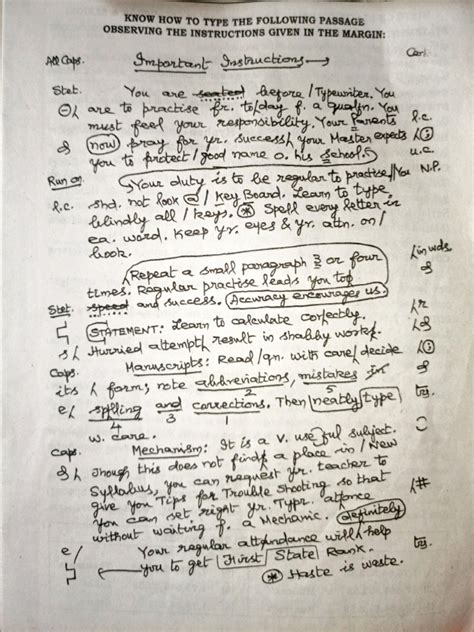 KNOW HOW TO TYPE THE FOLLOWING PASSAGE
OBSERVING THE INSTRUCTIONS GIVEN IN THE MARGIN:
All Caps. Important Instructions
Stet. You are seated before / Typewriter. You
are to practise fr. to/day f. a qualfn. You
must feel your responsibility. Your Parents l.c.
now pray for yr. success/ your Master expects
you to protect / good name o. his school. u.c.
Run on Your duty is to be regular to practise/ You N.P.
l.c. shd. not look @ / Key Board. Learn to type
blindly all / keys. * Spell every letter in
ea. word. Keep yr. eyes & yr. attn. on /
book.
Repeat a small paragraph 3 or four in wds.
times. Regular practise leads you to
Stet. speed and success. Accuracy encourages us.
STATEMENT: Learn to calculate correctly.
s Hurried attempt/ result in shabby work.
Caps. Manuscripts: Read / qn. with care/ decide
its / form; note abbreviations, mistakes in
e/ splling and corrections. Then neatly type trs.
4 3 1 2
w. care.
Caps. Mechanism: It is a v. use ful subject.
Though this does not find a place in / New
Syllabus, you can request yr. teacher to
give you Tips for Trouble Shooting so that
you can set right yr. Typr. at once #
without waiting f. a Mechanic. definitely
e/ Your regular attendance will help trs.
you to get First State Rank.
* Haste is waste.